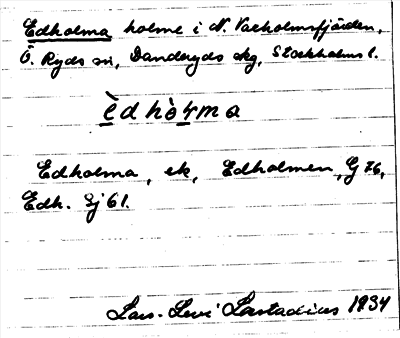 Edholma holme i N. Vaxholmsfjärden,
Ö. Ryds sn, Danderyds skg, Stockholms l.
èdhòłma
Edholma, ek, Edholmen, G 76,
Edh. Sj 61.
Lars-Levi Læstadius 1934